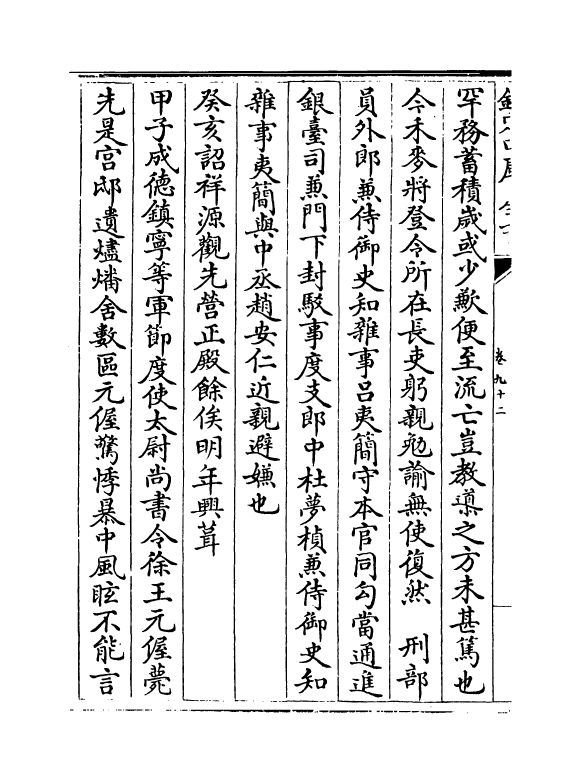 卷九十二
罕務蓄積歲或少歉便至流亡豈教導之方未甚篤也
今禾麥將登令所在長吏躬親勉諭無使復然　刑部
員外郎兼侍御史知雜事呂夷簡守本官同勾當通進
銀臺司兼門下封駮事度支郎中杜夢楨兼侍御史知
雜事夷簡與中丞趙安仁近親避嫌也
癸亥詔祥源觀先營正殿餘俟明年興葺
甲子成德鎮寧等軍節度使太尉尚書令徐王元偓薨
先是宮邸遺燼燔舍數區元偓驚悸暴中風眩不能言